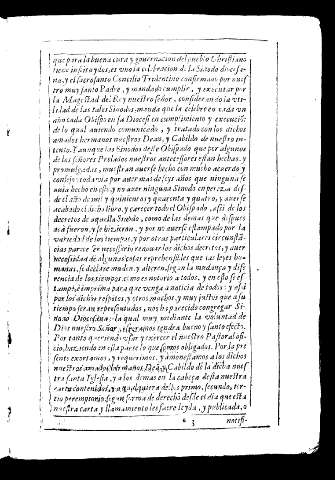 que para la buena cura y gouernacion del pueblo Christiano
son instituydos, es vno la celebracion de la Synodo diocesa-
no, y el sacrosanto Concilio Tridentino confirmado por nue-
tro muy santo Padre, y mandado cumplir, y executar por
la Magestad del Rey nuestro señor, considerando la vti-
lidad de las tales Sinodos, manda que se celebren cada vn
año cada Obispo en su Diocesi en cumplimiento y execució
de lo qual auiendo comunicado, y tratado con los dichos
amados hermanos nuestros Dean, y Cabildo de nuestro in-
tento. Y aunque las Sinodos deste Obispado que por algunos
de los señores Prelados nuestros antecessores estan hechas, y
promulgadas, muestran auerse hecho con mucho acuerdo y
consejo: todauia por auer mas de seys años que ninguna se
auia hecho en esta y no auer ninguna Sinodo
del año de mil y quinientos y quarenta y quatro, y auerse
acabado libro, y carecer todo el Obispado, assi de los
decretos de aquella Sinodo, como de las demas que despues
aca fueron, y se hizieron, y por no auerse estampado por la
variedad de los tiempos, y por otras particulares circunstá-
cias parece ser necessario renouar los dichos decretos, y auer
necessidad de algunas cosas reprehensibles que las leyes hu-
manas, se declaren muden y alteren, segun la mudança y dife-
rencia de los tiempos, como es notorio a todos, y en esto se es-
tampe, é imprima para que venga a noticia de todos: y assi
por los dichos respetos, y otros muchos, y muy justos que a su
tiempo seran representados, nos ha parecido congregar Si-
nodo Diocesana: la qual muy mediante la voluntad de
Dios nuestro Señor, esperamos tendra bueno y santo efecto.
Por tanto queriendo vsar y exercer el nuestro Pastoral ofi-
cio, haziendo en esta parte lo que somos obligados. Por la pre-
sente exortamos, y requerimos, y amonestamos a los dichos
nuestros amados hermanos, Dean, y Cabildo de la dicha nues-
tra santa Iglesia, y a los demas en la cabeça desta nuestra
carta contenidos, y a qualquiera de los primo, secundo, ter-
tio peremptorio segun forma de derecho desde el dia que esta
nuestra carta y llamamiento les fuere leyda, y publicada, o
3 notifi-